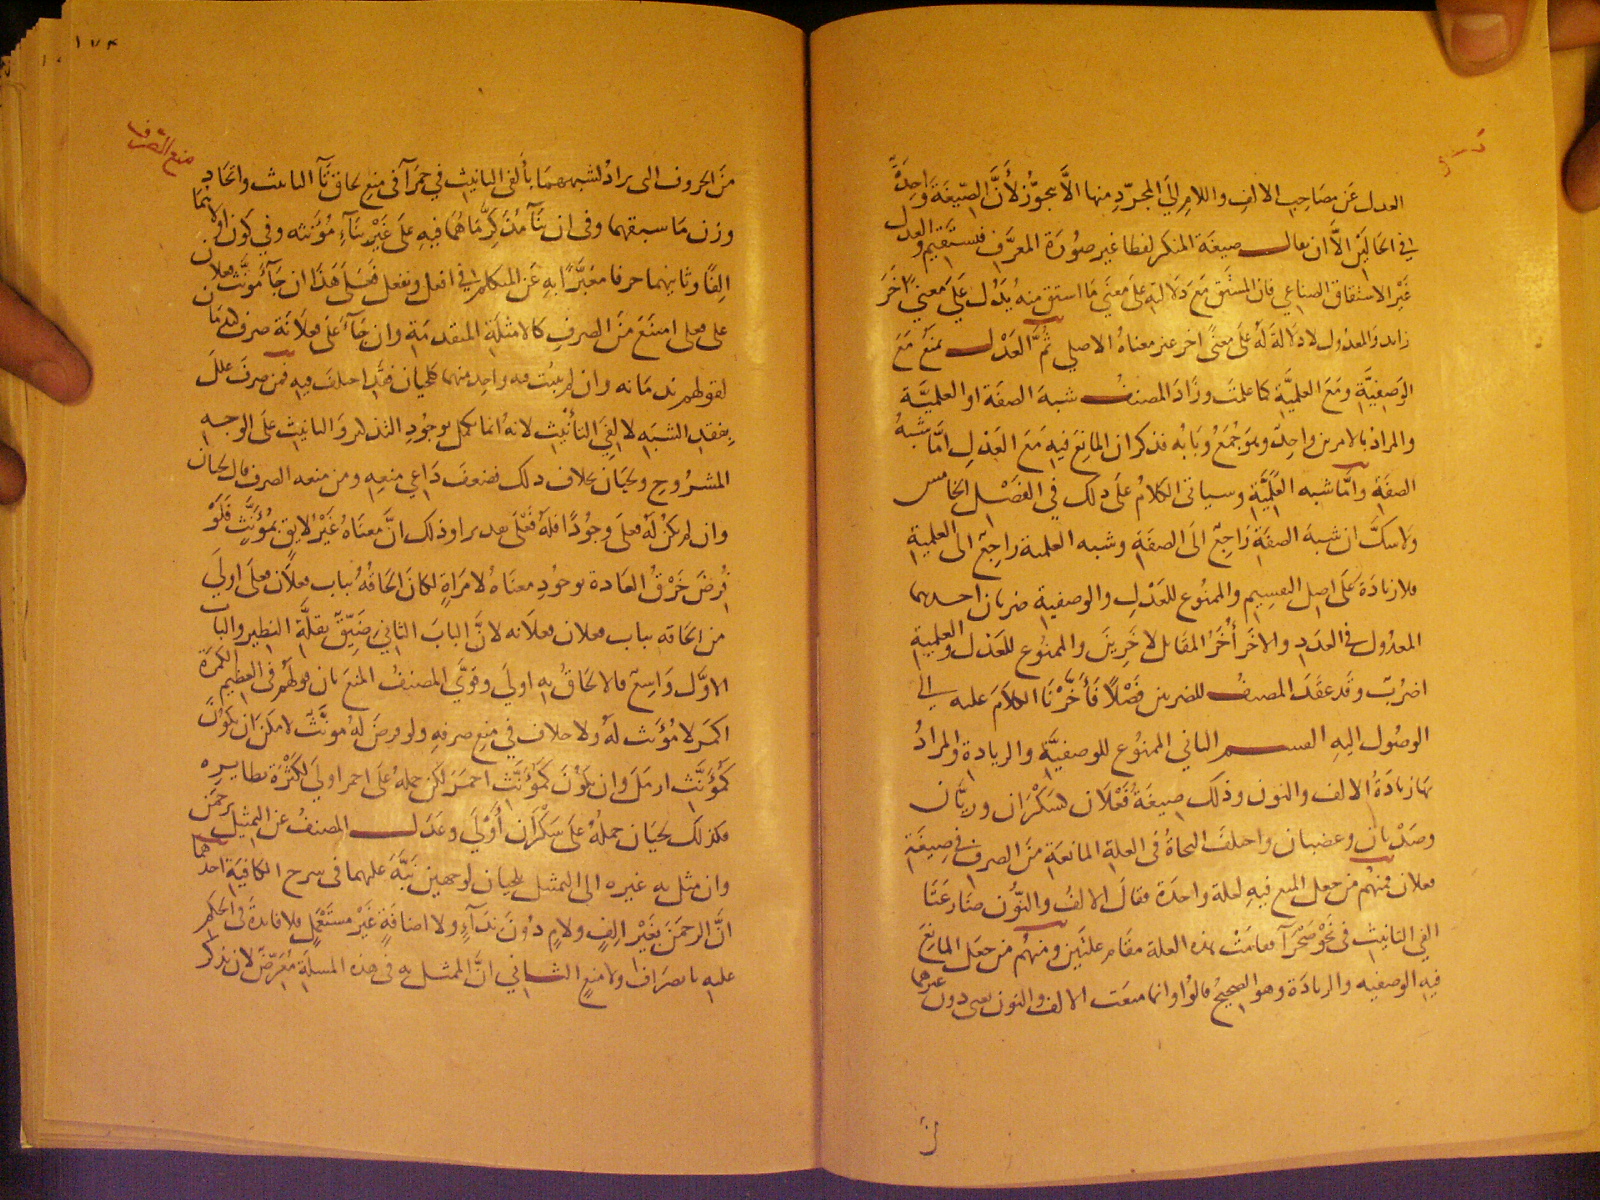 العدل عن مصاحب الالف واللام الى المجرد منها الا بتجوز لأن الصيغة واحدة
في الحالين الا ان يقال صيغة المنكر لفظا غير صورة المعرف فيستقيم والعدل
غير الاشتقاق الصناعي فان المشتق مع دلالته على معنى ما اشتق منه يدل على معنى آخر
زايد والمعدول لا دلالة له على معنى اخر غير معناه الاصلي ثم العدل يمنع مع
الوصفية ومع العلمية كما علمت وزاد المصنف شبه الصفة او العلمية
والمراد بالامرين واحد وهو جمع وبابه فذكر ان المانع فيه مع العدل اما شبه
الصفة واما شبه العلمية وسياتى الكلام على ذلك في الفصل الخامس
ولا شك ان شبه الصفة راجع الى الصفة وشبه العلمية راجع الى العلمية
فلا زيادة على اصل التقسيم والممنوع للعدل والوصفية ضربان احدهما
المعدول في العدد والاخر أخر المقابل لآخرين والممنوع للعدل والعلمية
اضرب وقد عقد المصنف للضربين فصلا فأخرنا الكلام عليه الى
الوصول اليه القسم الثاني الممنوع للوصفية والزيادة والمراد
بها زيادة الالف والنون وذلك صيغة فعلان كسكران وريان
وصديان وغضبان واختلف النحاة في العلة المانعة من الصرف في صيغة
فعلان فمنهم من جعل المنع فيه لعلة واحدة فقال الالف والنون ضارعتا
الفي التانيث في نحو صحرآ فقامت هذه العلة مقام علتين ومنهم من جعل المانع
فيه الوصفيه والزيادة وهو الصحيح قالوا وانما منعت الالف والنون يعني دون غيرهما
منع الصرف
١٧٣
من الحروف التى يراد لشبههما بألفي التانيث في حمرآ في منع لحاق تآ التانيث واتحاد
وزن ما سبقهما وفى ان بنآ مذكر ما هما فيه على غير بنآء مؤنثه وفي كون اولاهما
الفا وثانيهما حرفا معبرا به عن المتكلم في افعل ونفعل فعلى هذا ان جآ مؤنث فعلان
على فعلى امتنع من الصرف كالامثلة المتقدمة وان جآء على فعلانة صرف كندمان
لقولهم ندمانه وان لم يثبت فيه واحد منهما كلحيان فقد اختلف فيه فمن صرف علل
بفقد الشبه لالفي التأنيث لانه انما كمل بوجود التذكير والتانيث على الوجه
المشروح ولحيان بخلاف ذلك فضعف داعي منعه ومن منعه الصرف قال لحيان
وان لم يكن له فعلى وجودا فله فعلى تقديرا وذلك ان معناه غير لايق بمؤنث فلو
فرض خرق العادة بوجود معناه لامراة لكان الحاقه بباب فعلان فعلى اولى
من الحاقه بباب فعلان فعلانه لان الباب الثاني ضيق بقلة النظير والباب
الاول واسع فالالحاق به اولى وقوى المصنف المنع بان قولهم في العظيم الكمرة
اكمر لا مؤنث له ولا خلاف في منع صرفه ولو فرض له مونث لامكن ان يكون
كمؤنث ارمل وان يكون كمؤنث احمر لكن حمله على احمر اولى لكثرة نظايره
فكذلك لحيان حمله على سكران أولى وعدل المصنف عن التمثيل برحمن
وان مثل به غيره الى التمثيل بلحيان لوجهين نبه عليهما في شرح الكافية احدهما
ان الرحمن بغير الف ولام دون ندآء ولا اضافة غير مستعمل فلا فائدة في الحكم
عليه بانصراف ولا منع الثاني ان الممثل به في هذه المسلة معرض لان يذكر